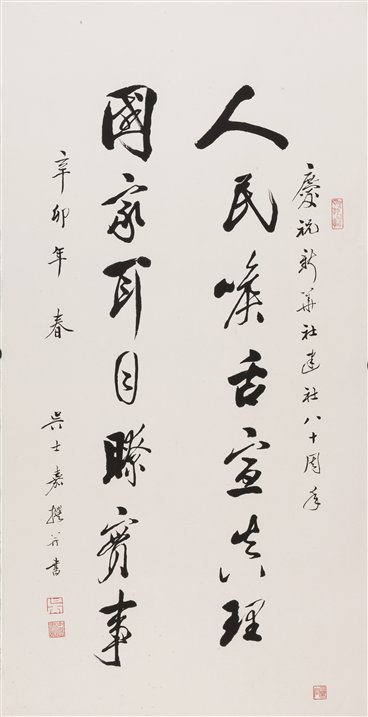 慶祝新華社建社八十周年
人民喉舌宣真理
國家耳目瞭實事
辛卯年春 吴士嘉撰并書